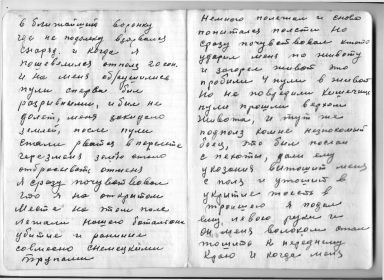 в ближайшую воронку
где не подалеку взорвался
снаряд. и когда я
пошевелился отполз 20 сан.
и на меня обрушились
пули сперва били
разрывными, и били не
долет, меня закидало
землей, после пули
стали рватся в перелете
через меня землю
отбрасывать отменя
Я сразу почувствовал
что я на открытом
месте на этом поле
Лежали нашего батальона
убитые и раненые
совместно снемецкими
трупами
Немного полежал и снова
попытался ползти но
сразу почувствовал ктото
ударил меня по животу
и загорел живот это
пробили 4 пули в живот
но не повредили кишечник
пули прошли верхом
живота, и тут же
подполз комне незнакомый
боец, это был послан
с пехоты, дали ему
указания вытащит меня
с поля и утащить в
укрытие тоесть в
траншею Я подал
ему левою руку и
он меня волоком стал
тащить к переднему
Краю и когда меня